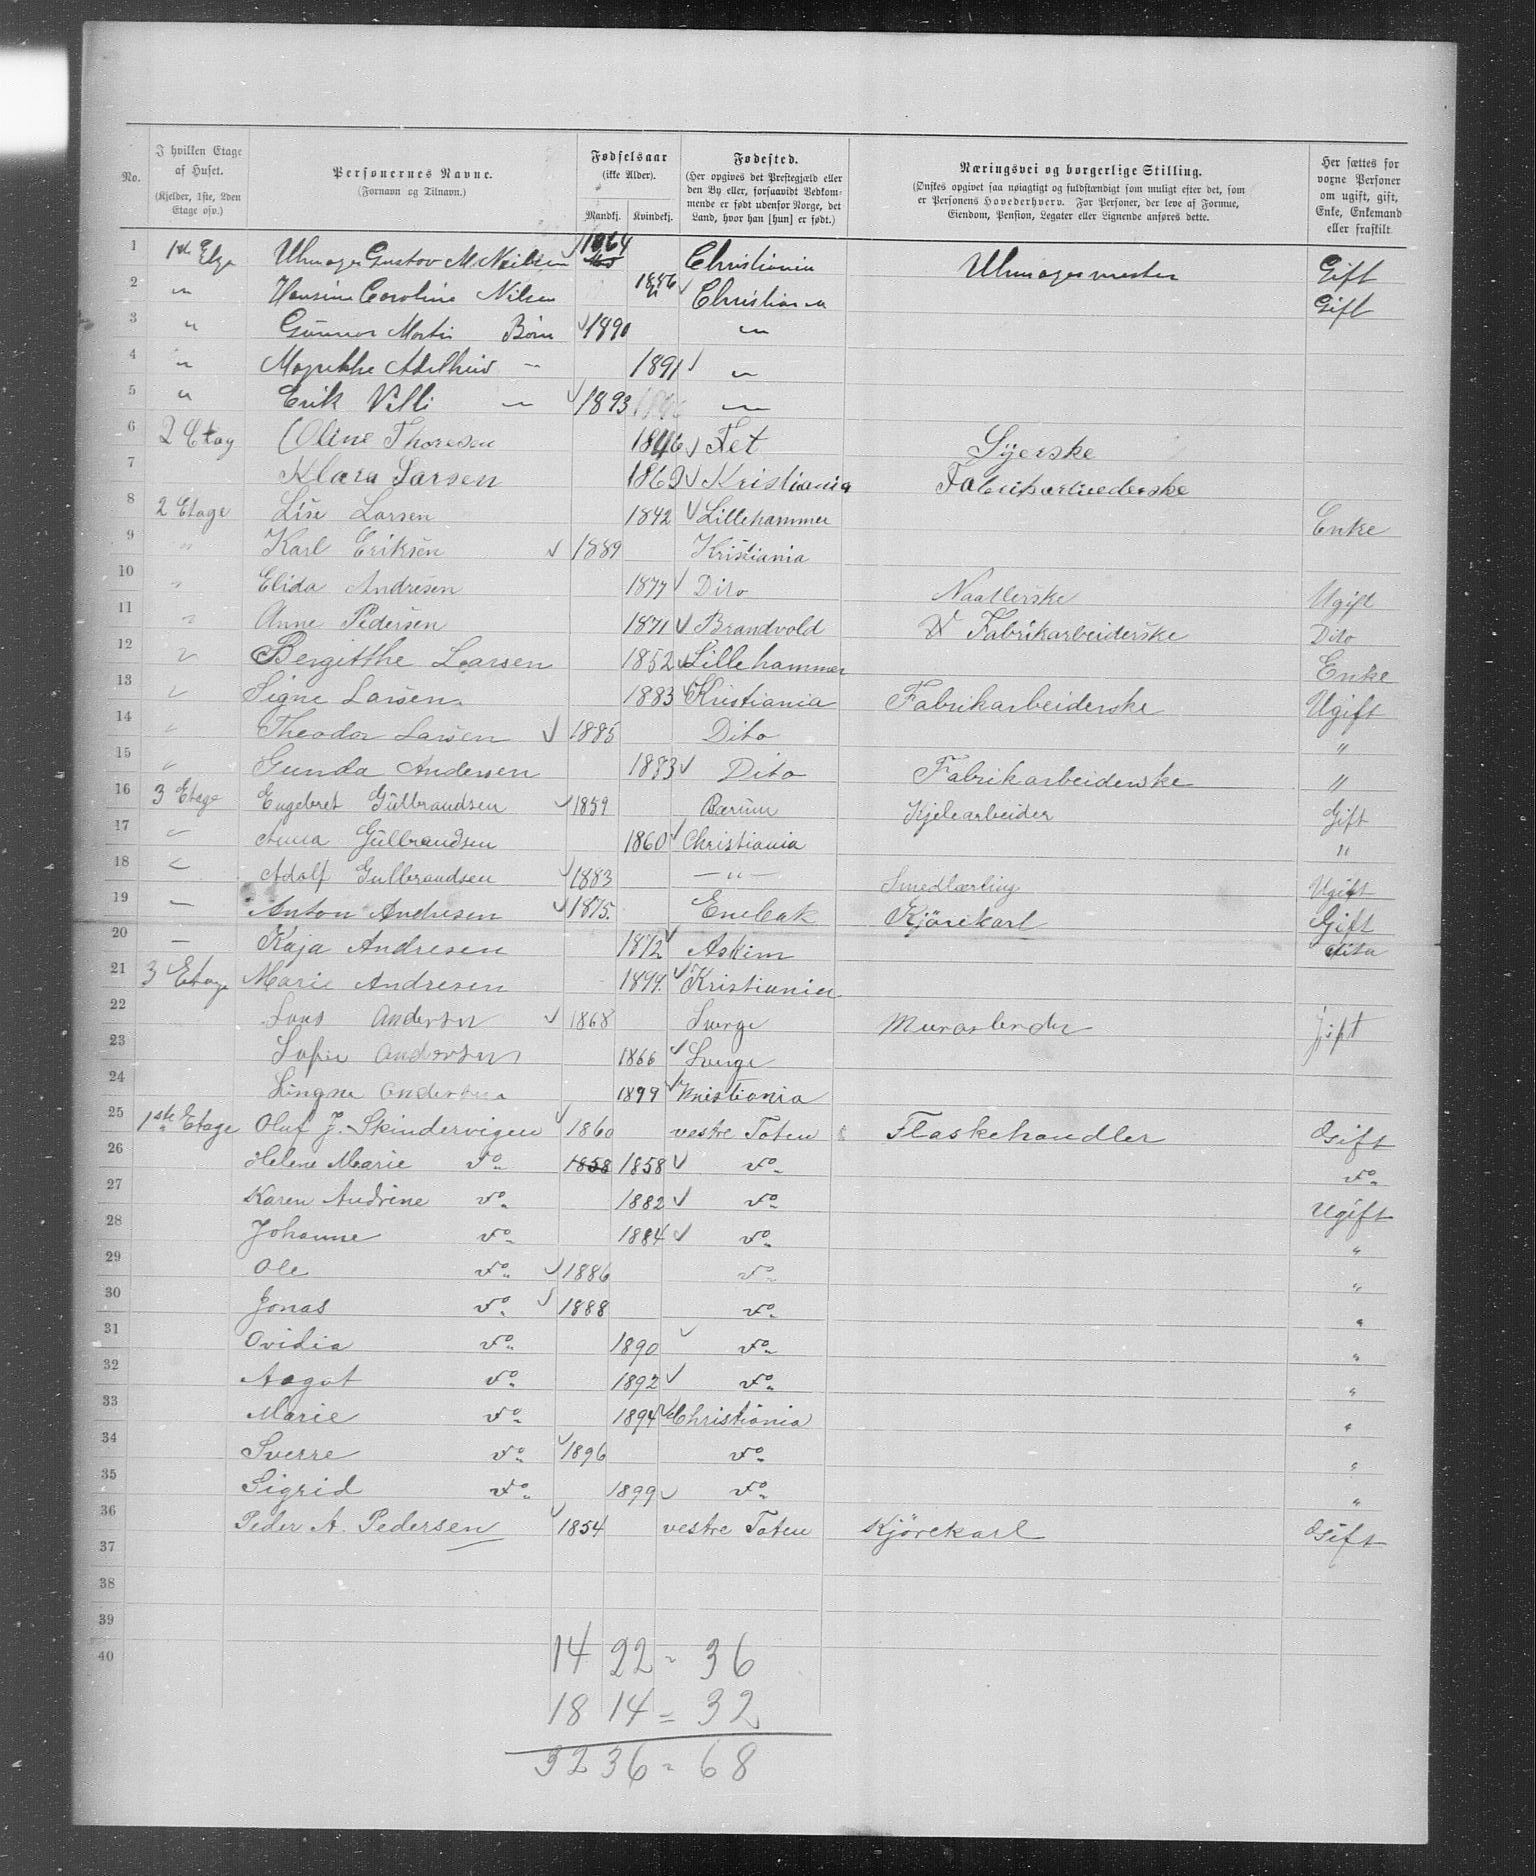 No.
I hvilken Etage af Huset.
(Kjelder, 1ste, 2den Etage osv.)
Personernes Navne.
(Fornavn og Tilnavn.)
Fødselsaar
(ikke Alder).
Mandkj. Kvindekj.
Fødested.
(Her opgives det Prestegjæld eller den By eller, forsaavidt Vedkommende er født udenfor Norge, det Land, hvor han [hun] er født.)
Næringsvei og borgerlige Stilling.
(Ønskes opgivet saa nøiagtigt og fuldstændigt som muligt efter det, som er Personens Hovederhverv. For Personer, der leve af Formue, Eiendom, Pension, Legater eller Lignende anføres dette.
Her sættes for voxne Personer om ugift, gift, Enke, Enkemand eller fraskilt.
1 Uhrmager Gustav M Neilsen 1864 Christiania Uhrmagermester Gift
2 " Hansine Caroline Nilsen Christiania Gift
3 " Gunner Martin Børn 1890 "
4 " 1891 "
5 " Erik Villi " 1893 "
6 2 Etag Oline Thoresen 1846 Fet Syerske
7 Klara Larsen 1869 Kristiania Fabrikarbeiderske
8 2 Etage Lise Larsen 1842 Lillehammer Enke
9 " Karl Eriksen 1889 Kristiania
10 " Elida Andresen 1877 Dito Naatlerske Ugift
11 " Anne Pedersen 1871 Brandvold Fabrikarbeiderske Dito
12 " Bergitthe Larsen 1852 Lillehammer Enke
13 " Signe Larsen 1883 Kristiania Fabrikarbeiderske Ugift
14 " Theodor Larsen 1885 Dito "
15 " Gunda Andersen 1883 Dito Fabrikarbeiderske "
16 3 Etage Engebret Gulbrandsen 1859 Bærum Kjelearbeider Gift
17 " Anna Gulbrandsen 1860 Christiania "
18 " Adolf Gulbrandsen 1883 — " — Smedlærling Ugift
19 — Anton Andresen 1875. Enebak Kjörekarl Gift
20 — Kaja Andresen 1872 Askim dito
21 3 Etage Marie Andresen 1899. Kristiania
22 Lars Andersen 1868 Sverge Murarbeider Gift
23 Sofie Andersen 1866 Sverge
24 Andersen 1899 Kristiania
25 1ste Etage Oluf J. Skindervigen 1860 vestre Toten Flaskehandler Gift
26 Helene Marie do 1858 1858 do do
27 Karen Andrine do 1882 do Ugift
28 Johanne do 1884 do "
29 Ole do 1886 do "
30 Jonas do 1888 do "
31 Ovidia do 1890 do "
32 Aagot do 1892 do "
33 Marie do 1894 Christiania "
34 Sverre do 1896 do "
35 Sigrid do 1899 do "
36 Peder A. Pedersen 1854 vestre Toten Kjörekarl Gift
37
38
39
40
14 22 = 36
18 14 = 32
32 36 = 68